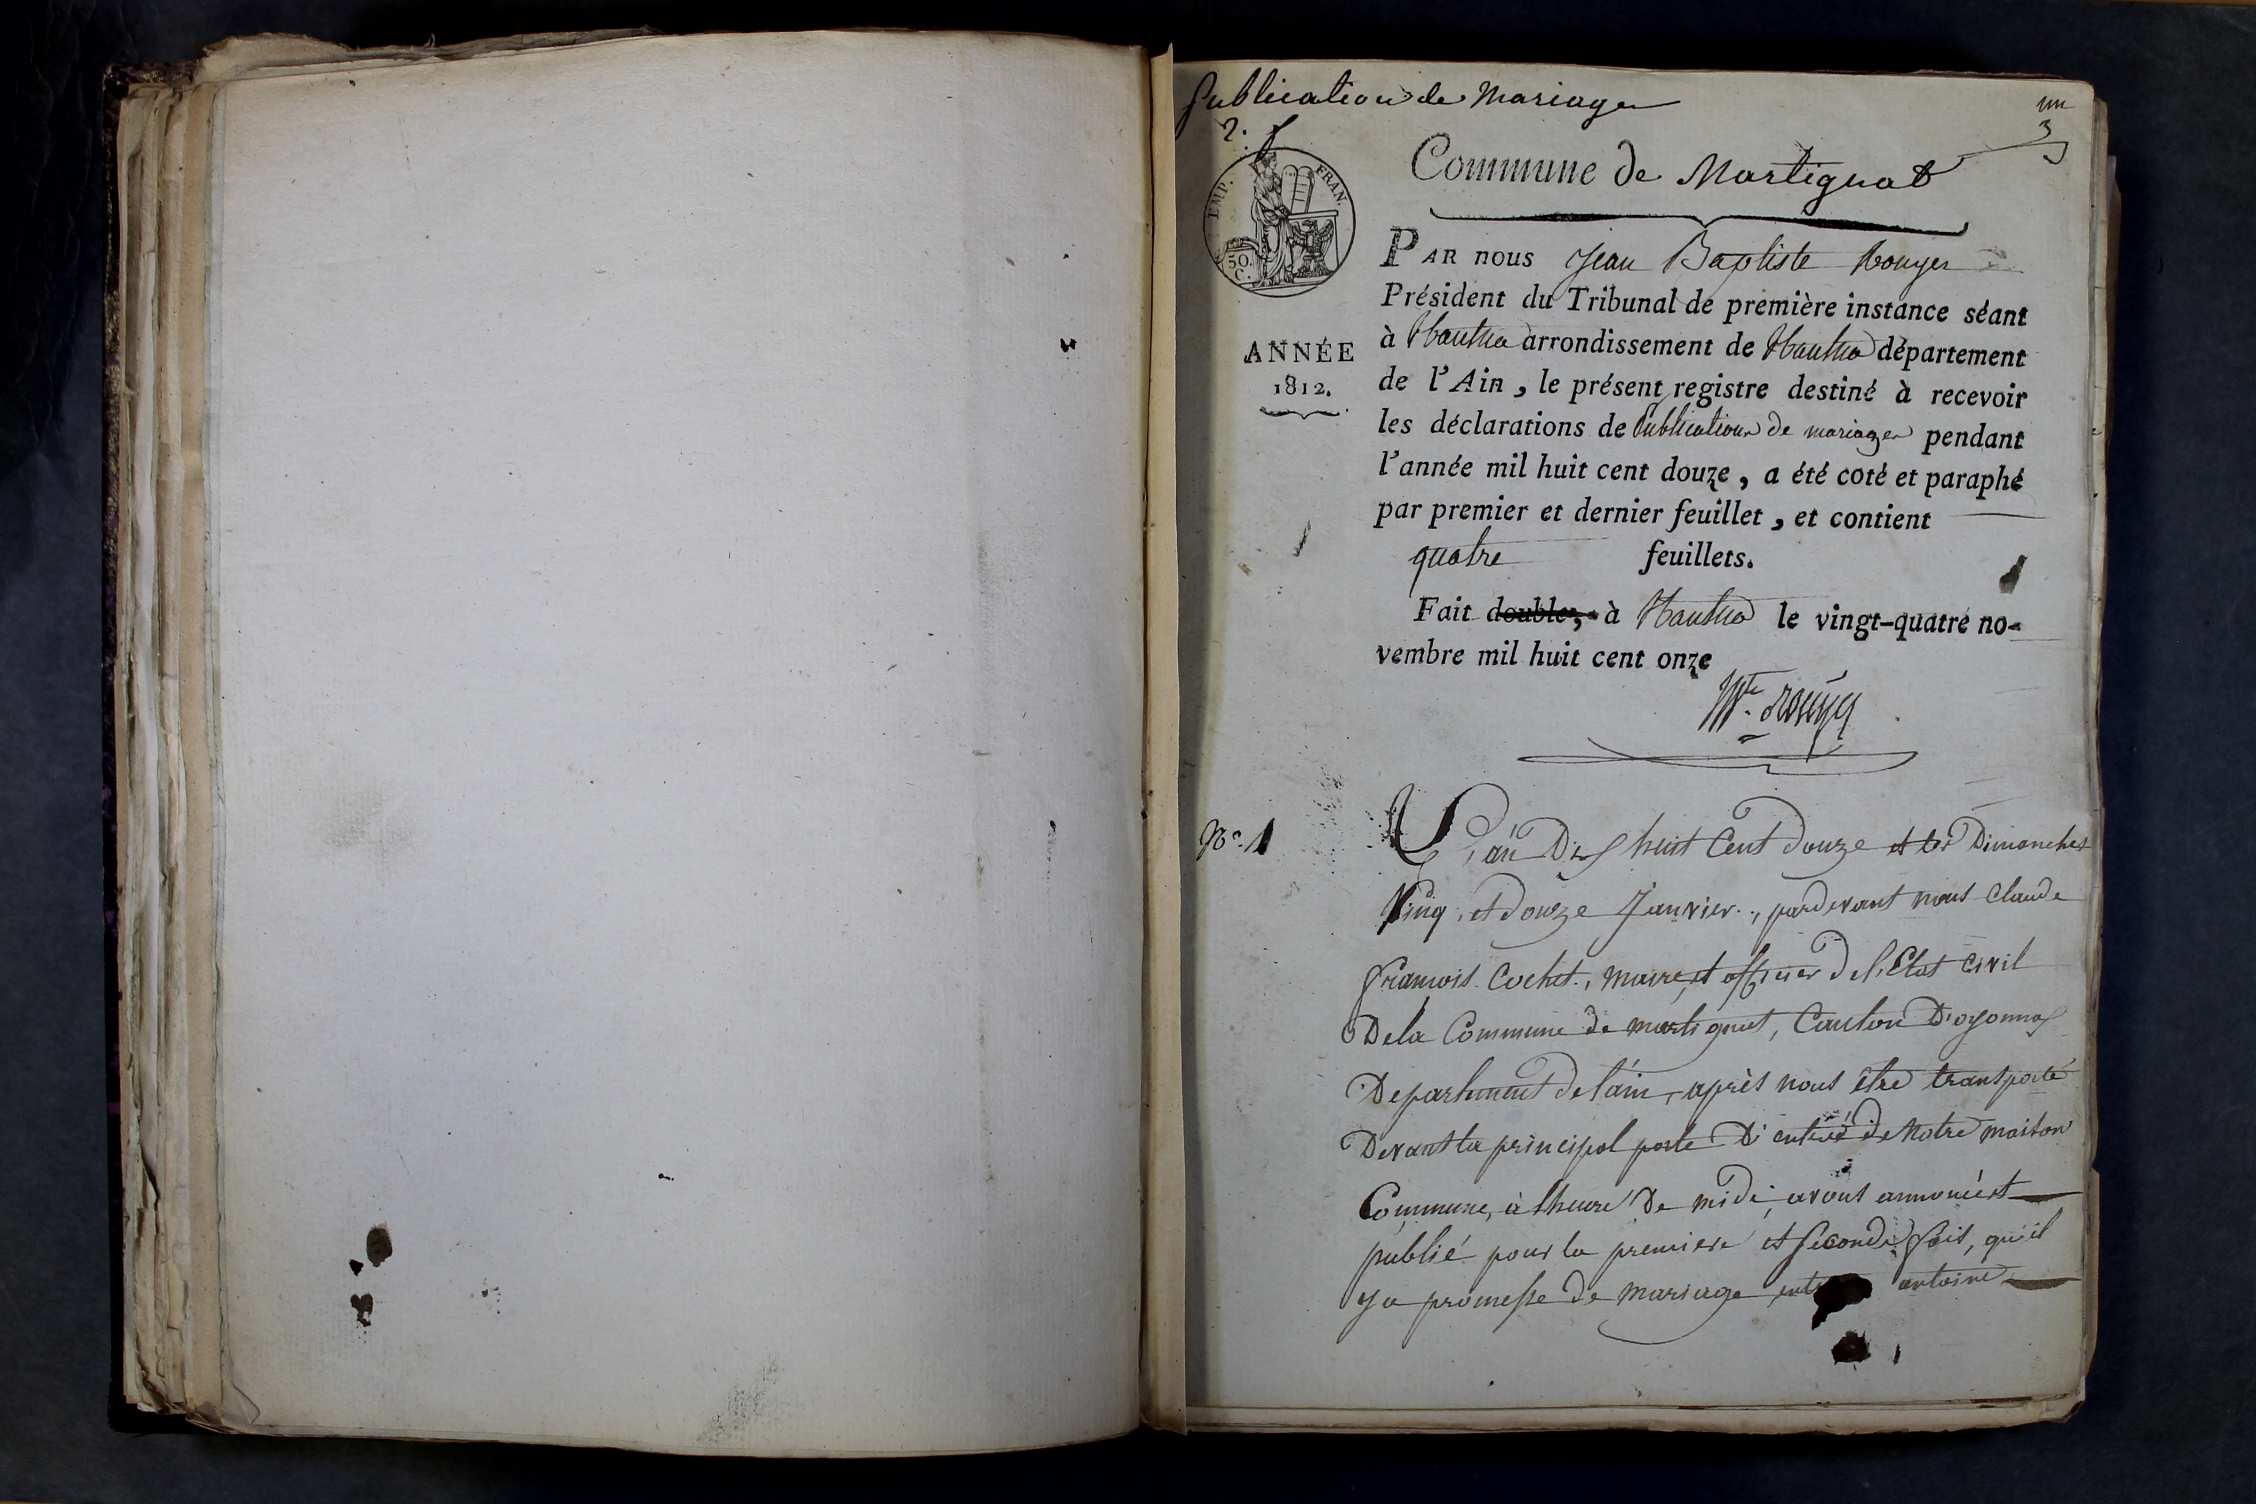 Publication de Mariages
2.
un
3
EMP. FRAN.
50. C.
Commune de Martignat
PAR nous Jean Baptiste Rouyer
Président du Tribunal de première instance séant
à Nantua arrondissement de Nantua département
ANNÉE
1812.
de l'Ain, le présent registre destiné à recevoir
les déclarations de Publications de mariages pendant
l'année mil huit cent douze, a été coté et paraphé
par premier et dernier feuillet, et contient
quatre feuillets.
Fait double, à Nantua le vingt-quatre no-
vembre mil huit cent onze
N.º 1
L'an Dix huit Cent Douze et les Dimanches
Cinq, et Douze Janvier, pardevant nous Claude
François Cochet, maire, et officier de l'Etat civil
De la Commune de martignat, Canton D'oyonnax
Departement de l'ain, après nous être transporté
Devant la principal porte D'entrée de Notre maison
Commune, à lheure De midi, avons annoncé et
publié pour la premiere et seconde fois, qu'il
y a promesse de mariage antoine